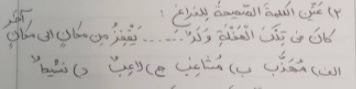 ٢) عَيِّنِ الكلمةَ الصَّحيحةَ لِلفراغِ :
كانَ في تِلكَ الحَفلَةِ وَلَدٌ ...... يَقفِزُ مِن مكانٍ الى مكانٍ آخَر
الف) مُهَذَّب ب) مُشاغِب ج) لاعِبٌ د) نَشيطٌ